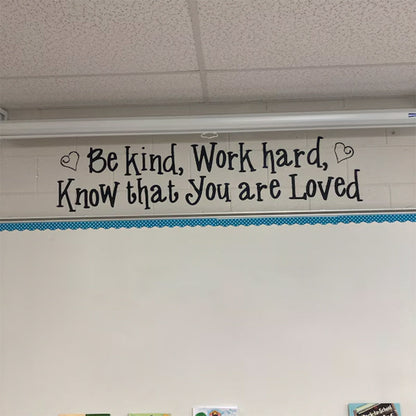 Be kind, Work hard,
Know that You are Loved